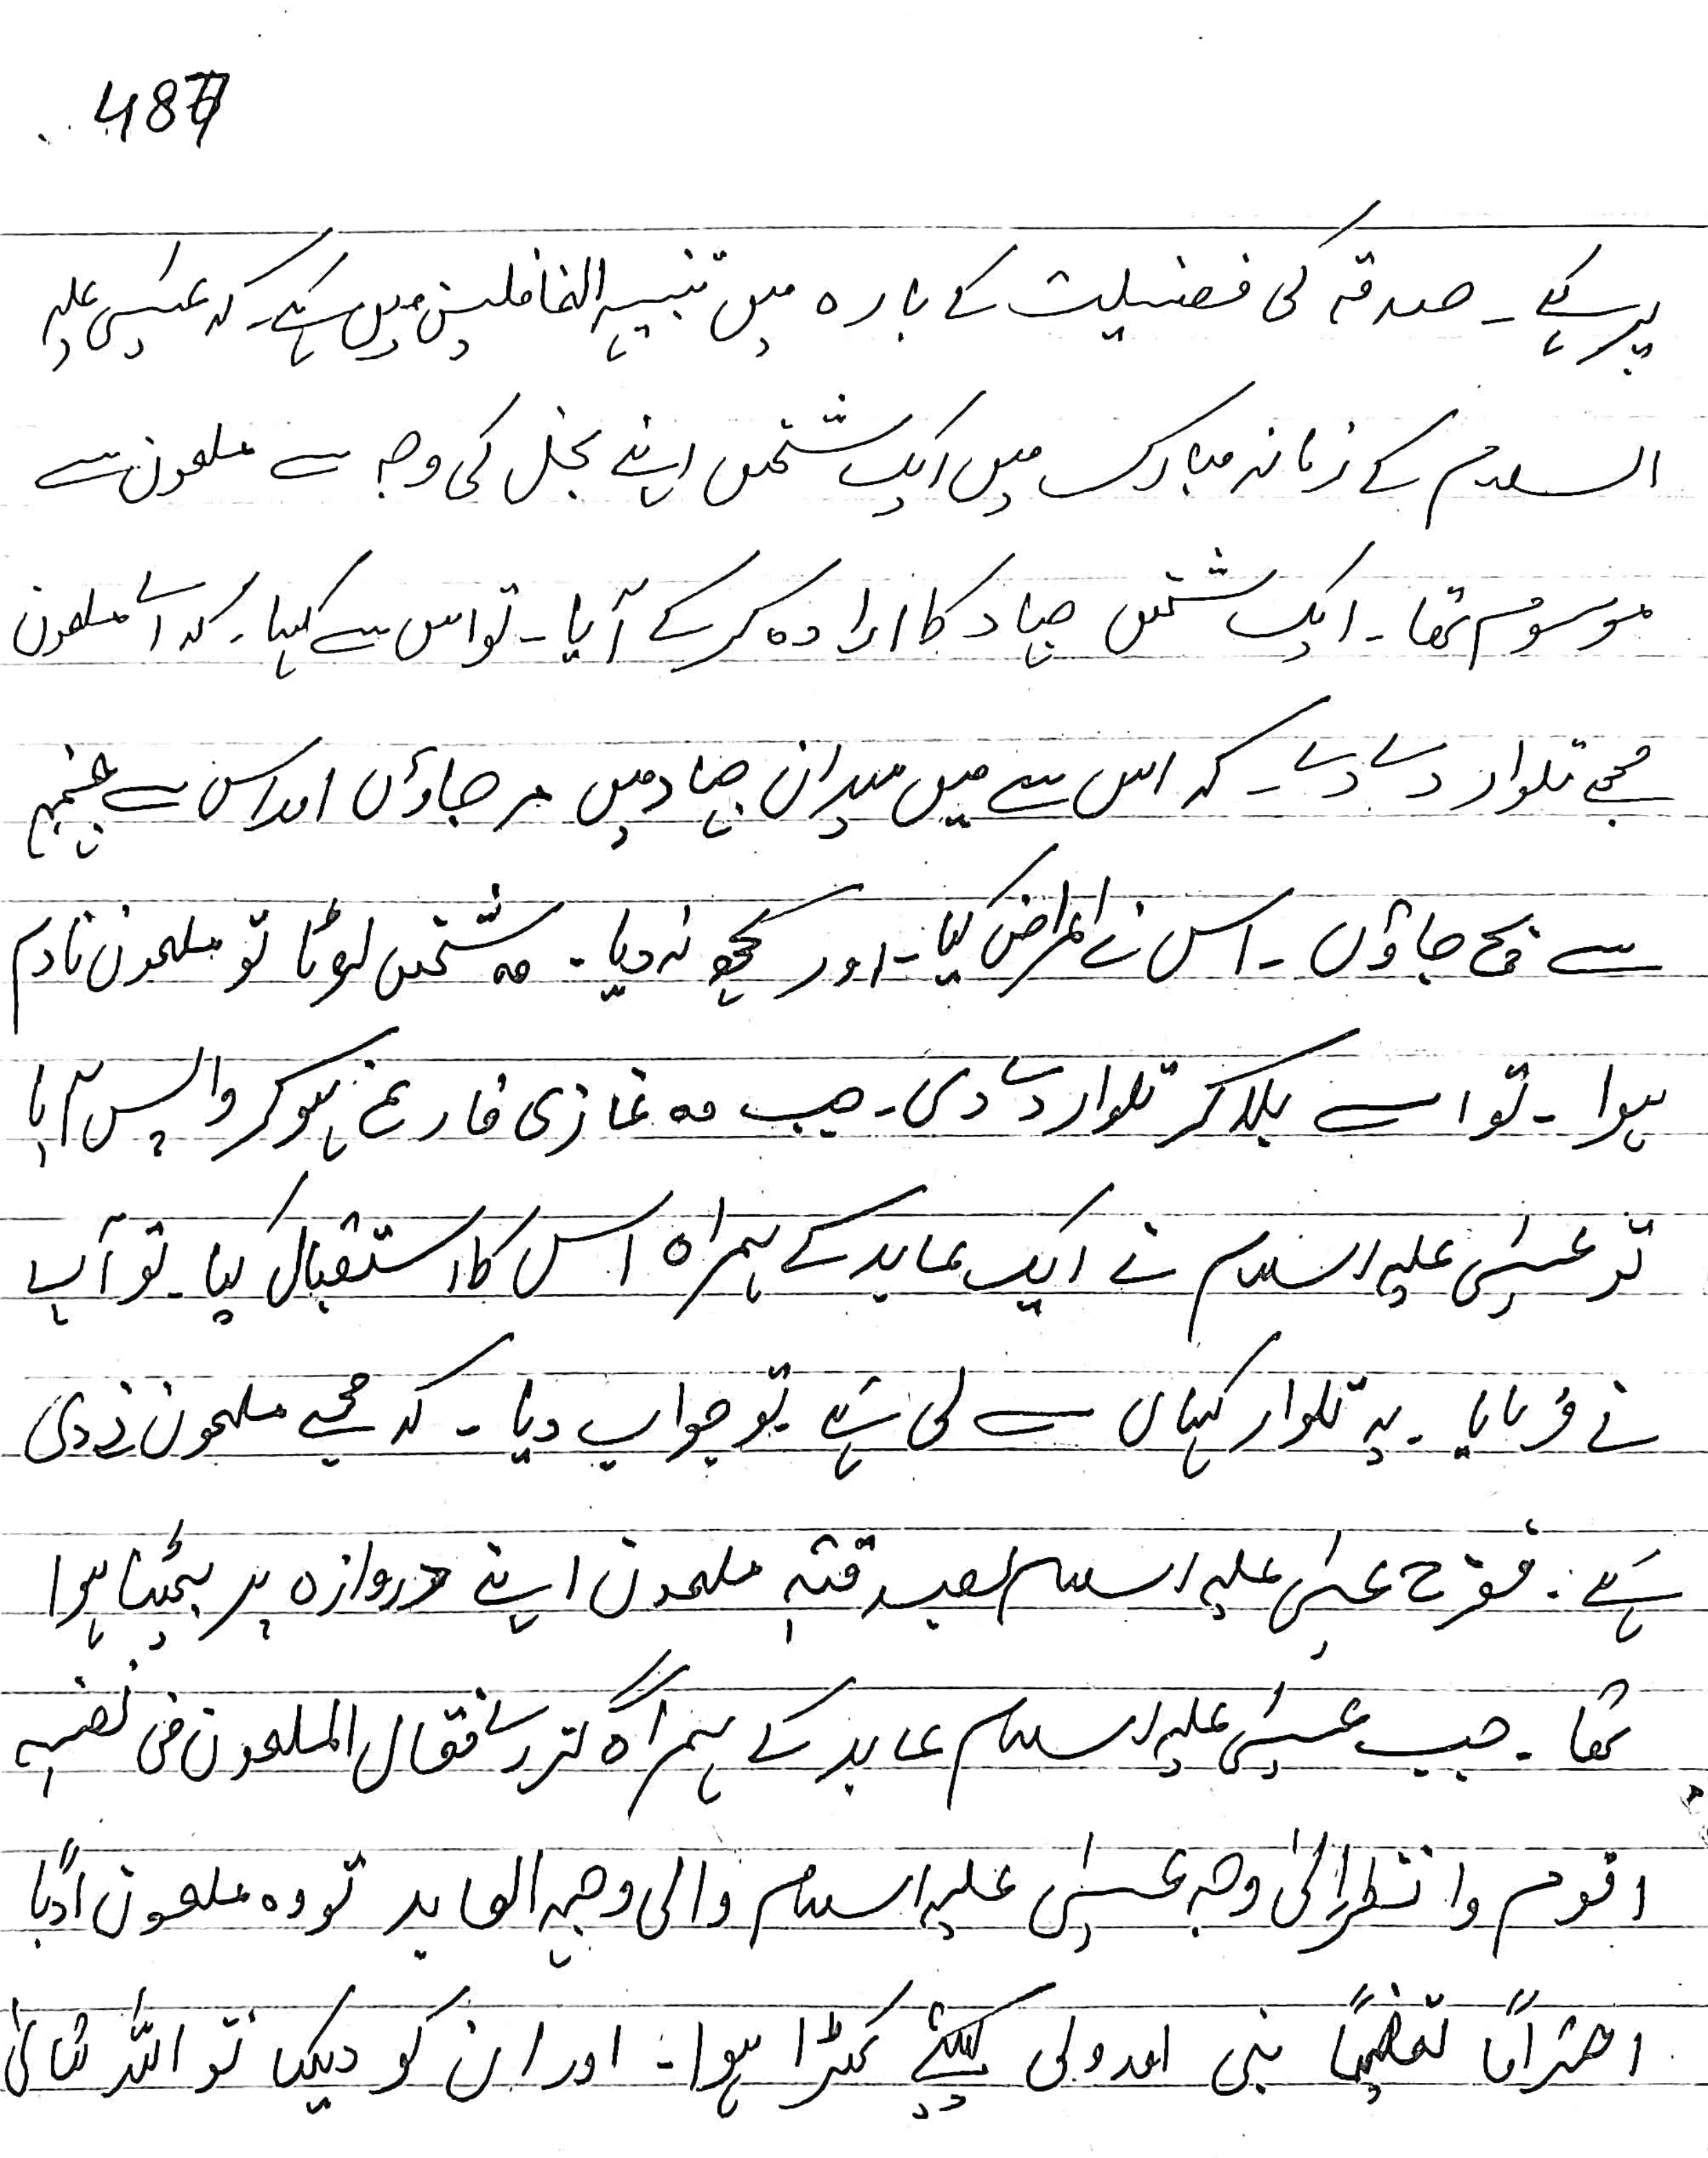 487
پر ہے ۔ صدقہ کی فضیلت کے بارہ میں تنبیہ الغافلین میں ہے ۔ کہ عیسٰی علیہ
السلام کے زمانہ مبارک میں ایک شخص اپنے بخل کی وجہ سے ملعون سے
موسوم تھا ۔ ایک شخص جہاد کا ارادہ کر کے آیا ۔ تو اس سے کہا ۔ کہ اے ملعون
مجھے تلوار دے دے ۔ کہ اس سے میں میدان جہاد میں مر جاؤں اور اس سے جہنم
سے بچ جاؤں ۔ اس نے اعراض کیا ۔ اور کچھ نہ دیا ۔ وہ شخص لوٹا تو ملعون نادم
ہوا ۔ تو اسے بلا کر تلوار دے دی ۔ جب وہ غازی فارغ ہو کر واپس آیا
تو عیسٰی علیہ السلام نے ایک عابد کے ہمراہ اس کا استقبال کیا ۔ تو آپ
نے فرمایا ۔ یہ تلوار کہاں سے لی ہے تو جواب دیا ۔ کہ مجھے ملعون نے دی
ہے ۔ ففرح عیسٰی علیہ السلام بصدقتہ ملعون اپنے دروازہ پر بیٹھا ہوا
تھا ۔ جب عیسٰی علیہ السلام عابد کے ہمراہ گزرے فقال الملعون فی نفسہ
اقوم وانظر الیٰ وجہ عیسٰی علیہ السلام والی وجہ العابد تو وہ ملعون ادباً
احتراماً تعظیماً نبی اور ولی کیلئے کھڑا ہوا ۔ اور ان کو دیکھا تو اللہ تعالیٰ